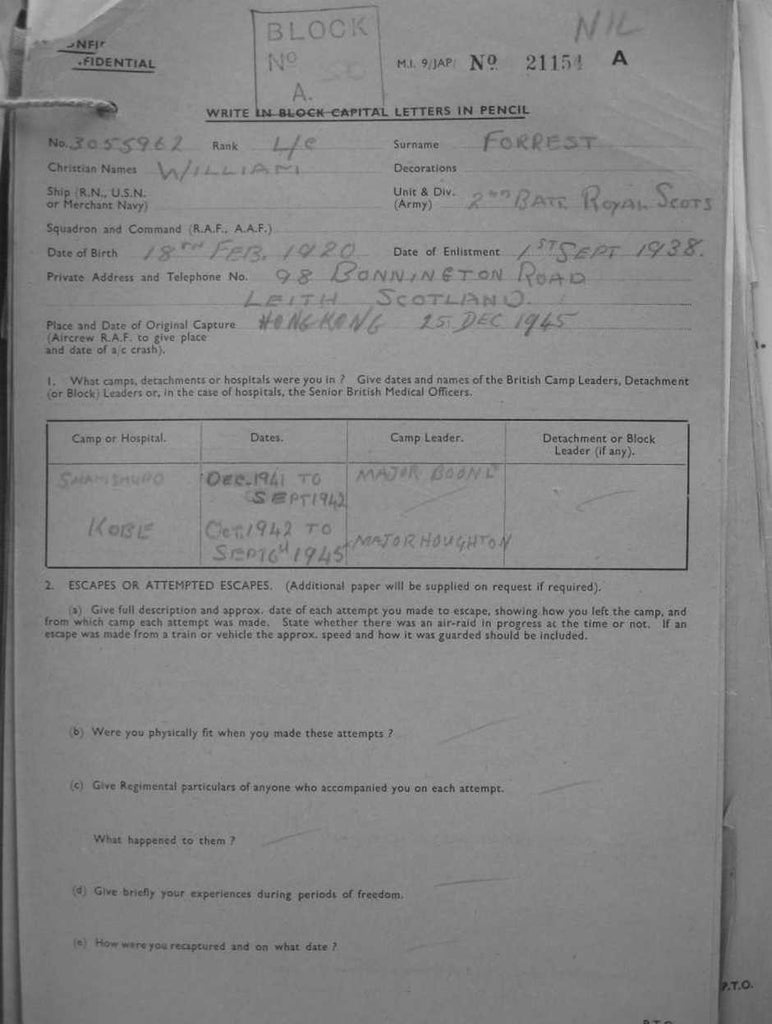 BLOCK
Nº
A.
NIL
CONFIDENTIAL
M.I. 9/JAP/ Nº 21154 A
WRITE IN BLOCK CAPITAL LETTERS IN PENCIL
No. 3055962 Rank L/C Surname FORREST
Christian Names WILLIAM Decorations
Ship (R.N., U.S.N. or Merchant Navy) Unit & Div. (Army) 2ND BATT ROYAL SCOTS
Squadron and Command (R.A.F., A.A.F.)
Date of Birth 18TH FEB. 1920 Date of Enlistment 1ST SEPT 1938.
Private Address and Telephone No. 98 BONNINGTON ROAD
LEITH SCOTLAND.
Place and Date of Original Capture HONG KONG 25 DEC 1945
(Aircrew R.A.F. to give place
and date of a/c crash).
1. What camps, detachments or hospitals were you in ? Give dates and names of the British Camp Leaders, Detachment
(or Block) Leaders or, in the case of hospitals, the Senior British Medical Officers.
Camp or Hospital. Dates. Camp Leader. Detachment or Block
Leader (if any).
SHAMSHUPO DEC. 1941 TO MAJOR BOONE
SEPT 1942
KOBE OCT. 1942 TO MAJOR HOUGHTON
SEP 1945
2. ESCAPES OR ATTEMPTED ESCAPES. (Additional paper will be supplied on request if required).
(a) Give full description and approx. date of each attempt you made to escape, showing how you left the camp, and
from which camp each attempt was made. State whether there was an air-raid in progress at the time or not. If an
escape was made from a train or vehicle the approx. speed and how it was guarded should be included.
(b) Were you physically fit when you made these attempts ?
(c) Give Regimental particulars of anyone who accompanied you on each attempt.
What happened to them ?
(d) Give briefly your experiences during periods of freedom.
(e) How were you recaptured and on what date ?
P.T.O.
P.T.O.